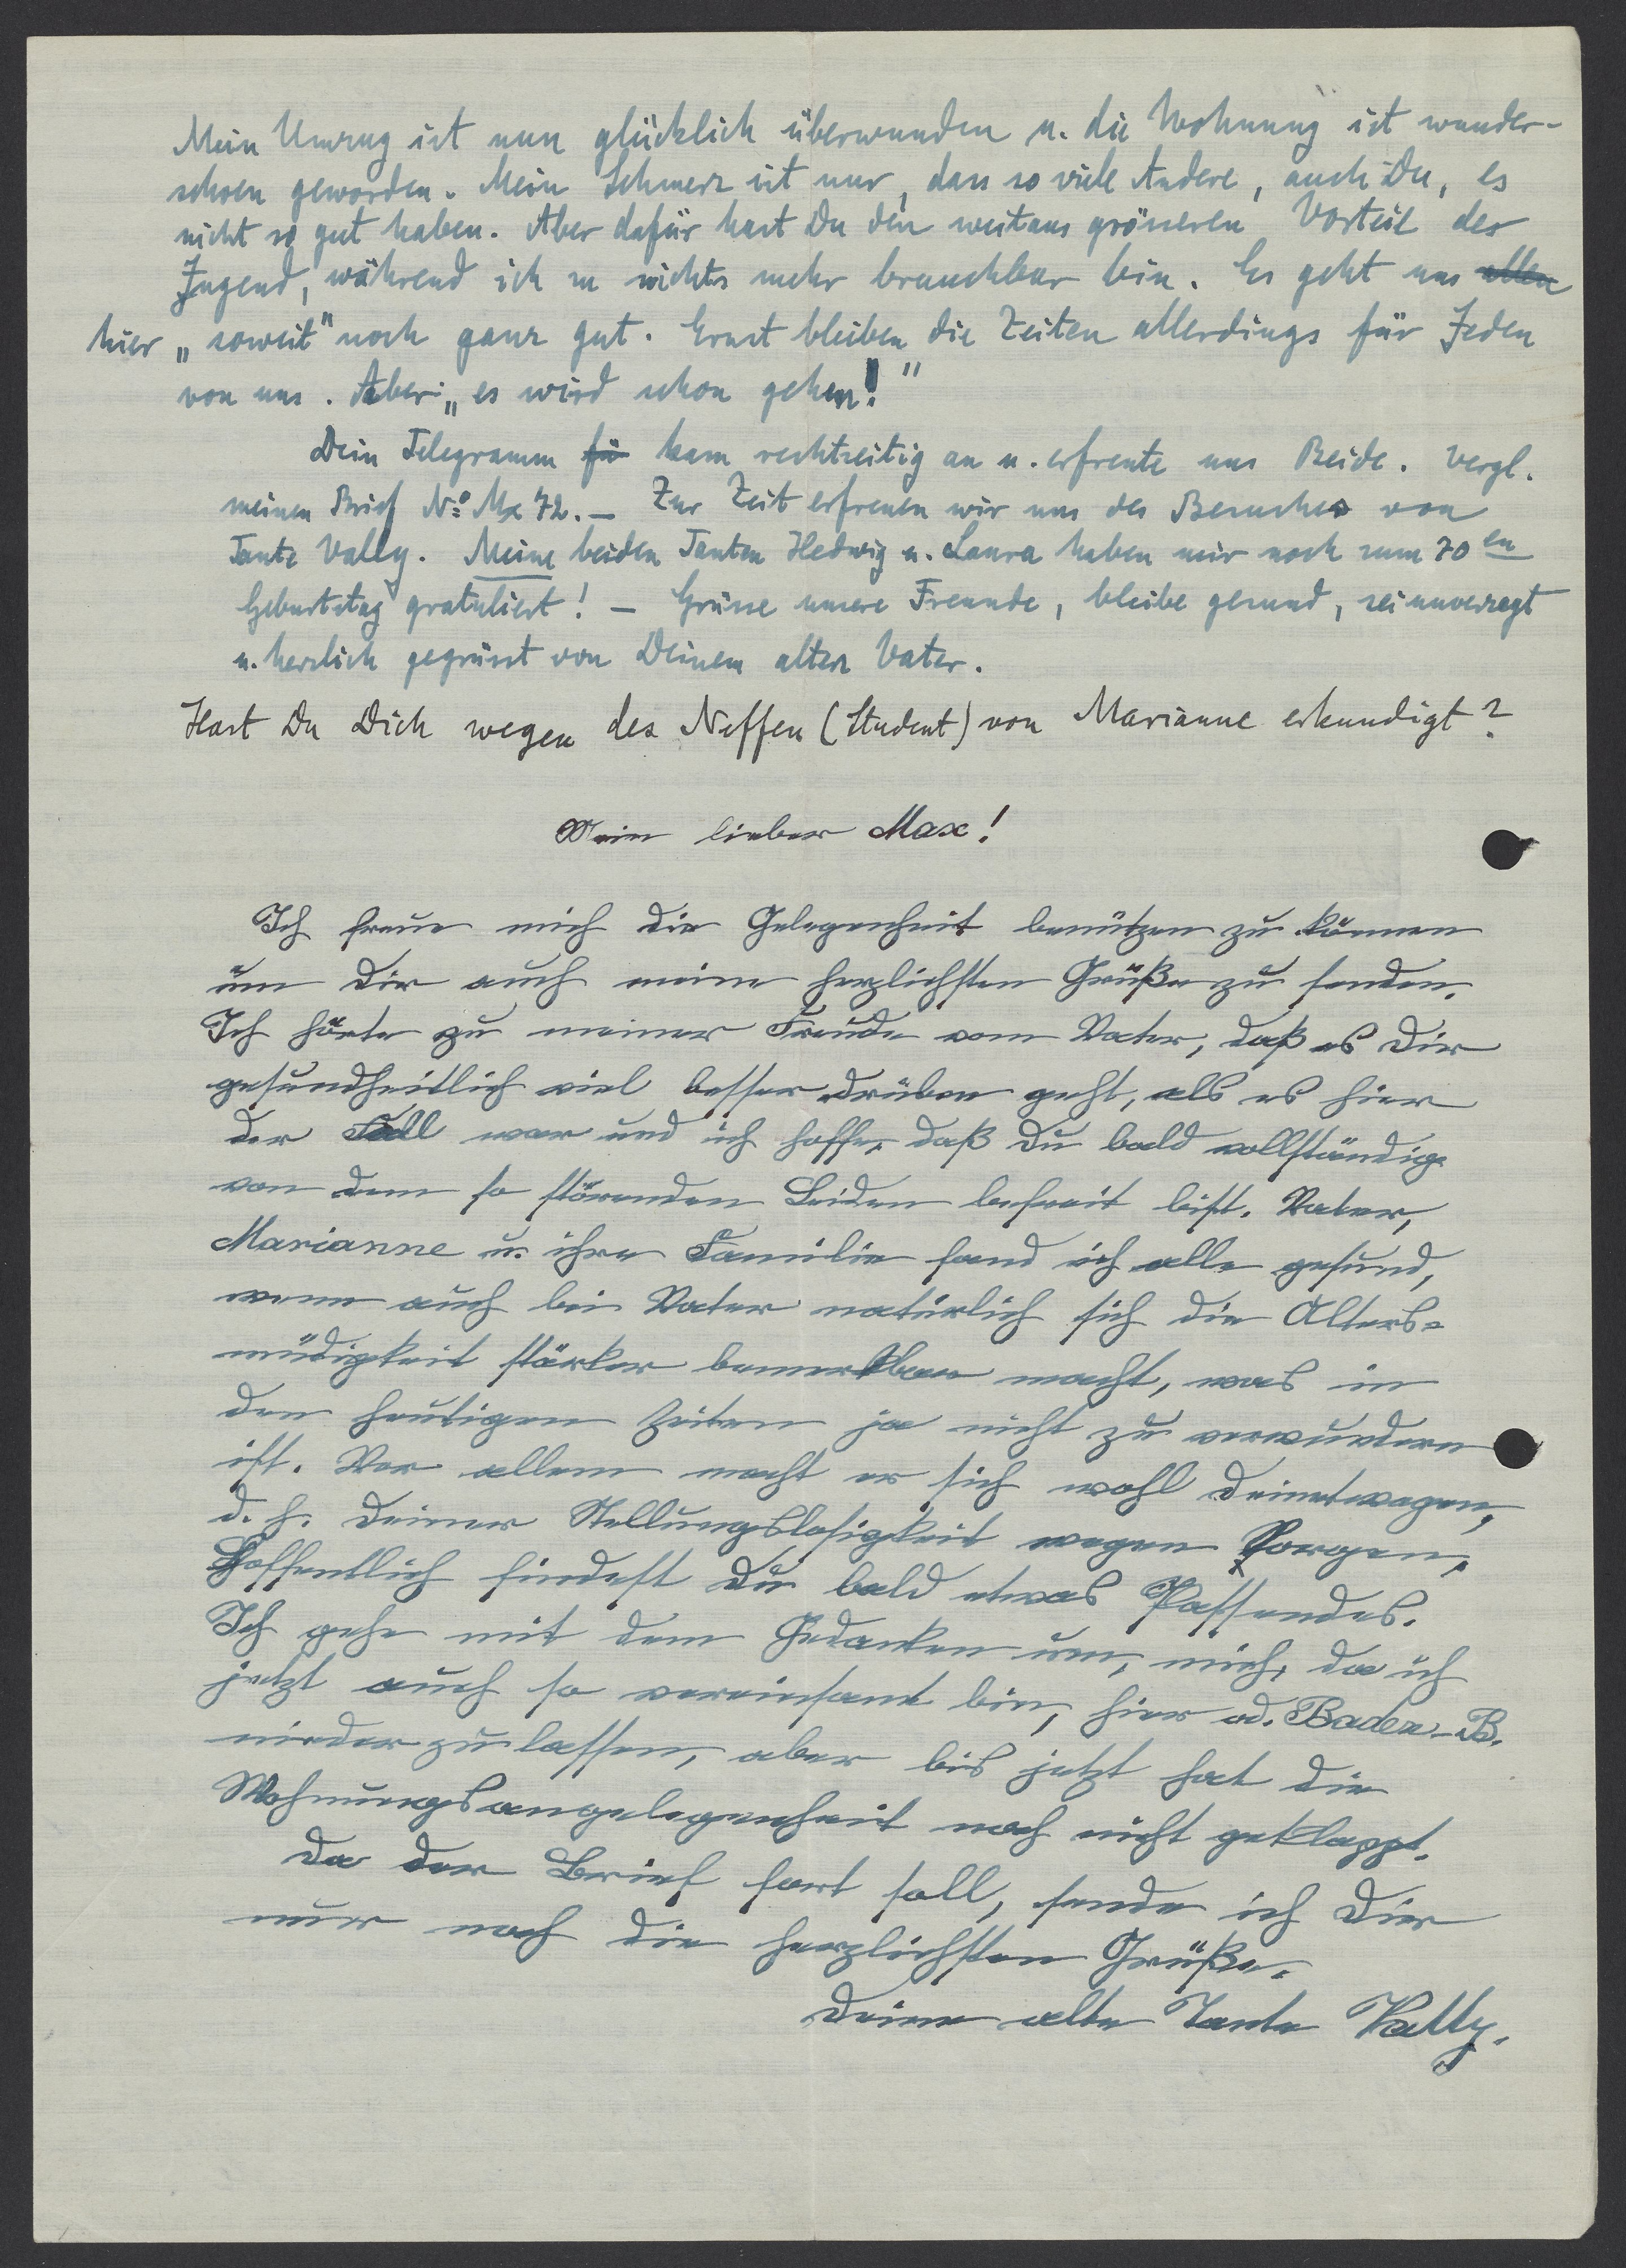 Mein Umzug ist nun glücklich überwunden u. die Wohnung ist wunder-
schoen geworden. Mein Schmerz ist nur, dass so viele Andere, auch Du, es
nicht so gut haben. Aber dafür hast Du den weitaus grösseren Vorteil der
Jugend, während ich zu nichts mehr brauchbar bin. Es geht uns allen
hier „soweit" noch ganz gut. Ernst bleiben die Zeiten allerdings für Jeden
von uns. Aber: „es wird schon gehen!"
Dein Telegramm fü kam rechtzeitig an u. erfreute uns Beide. Vergl.
meinen Brief No Mx 72. — Zur Zeit erfreuen wir uns des Besuches von
Tante Vally. Meine beiden Tanten Hedwig u. Laura haben mir noch zum 70en
Geburtstag gratuliert! — Grüsse unsere Freunde, bleibe gesund, sei unverzagt
u. herzlich gegrüsst von Deinem alten Vater.
Hast Du Dich wegen des Neffen (Student) von Marianne erkundigt?
Mein lieber Max!
Ich freue mich die Gelegenheit benützen zu können
um Dir auch meine herzlichsten Grüße zu senden.
Ich hörte zu meiner Freude vom Vater, daß es Dir
gesundheitlich viel besser drüben geht, als es hier
der Fall war und ich hoffe, daß Du bald vollständig
von dem so störenden Leiden befreit bist. Vater,
Marianne u. ihre Familie fand ich alle gesund,
wenn auch bei Vater natürlich sich die Alters-
müdigkeit stärker bemerkbar macht, was in
den heutigen Zeiten ja nicht zu verwundern
ist. Vor allem macht er sich wohl Deinetwegen,
d. h. Deiner Stellungslosigkeit wegen Sorgen,
Hoffentlich findest Du bald etwas Passendes.
Ich gehe mit dem Gedanken um, mich, da ich
jetzt auch so vereinsamt bin, hier od. Baden-B.
niederzulassen, aber bis jetzt hat die
Wohnungsangelegenheit noch nicht geklappt.
Da der Brief fort soll, sende ich Dir
nur noch die herzlichsten Grüße.
Deine alte Tante Vally.